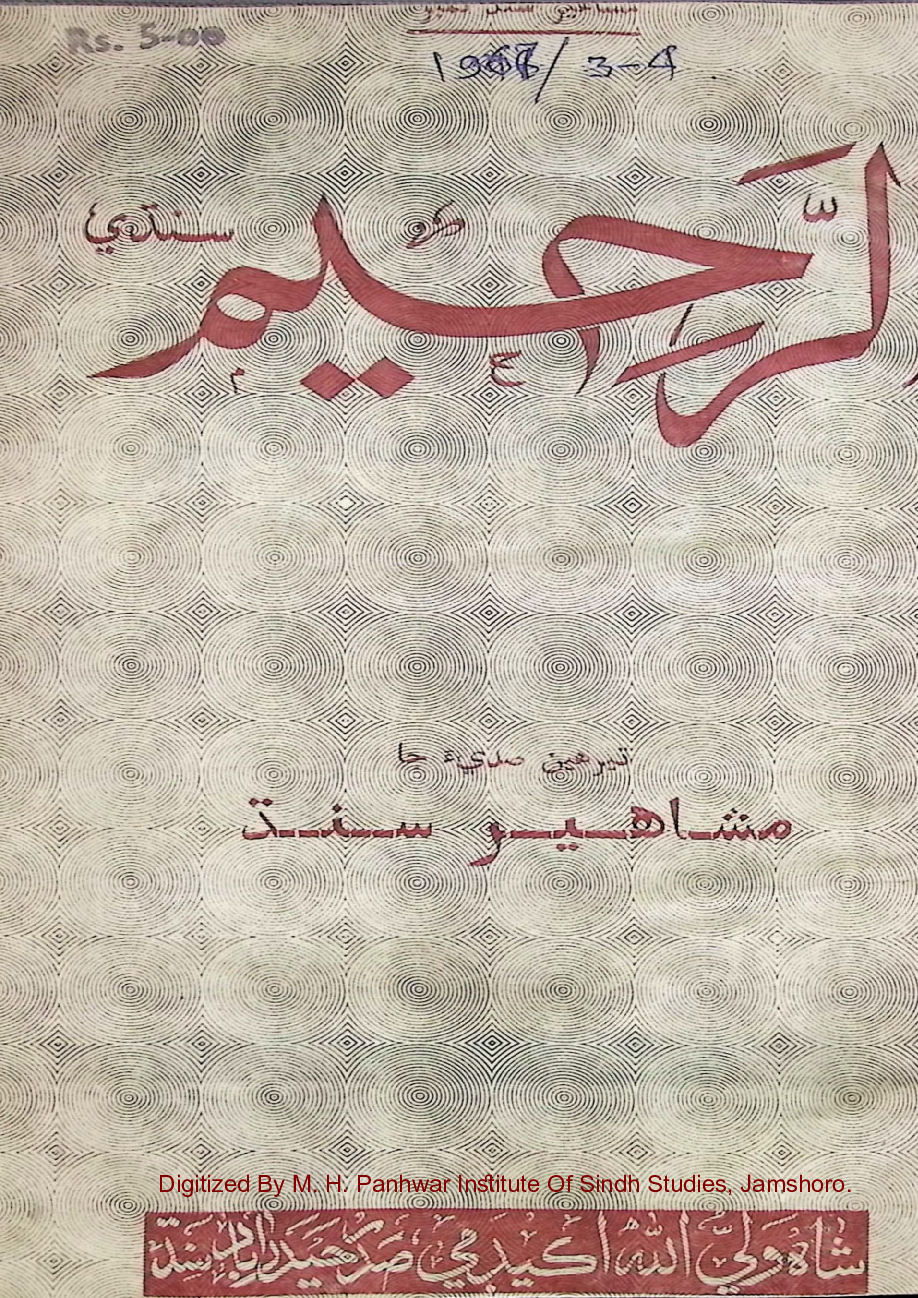 مشاهير سنڌ نمبر
Rs. 5-00
/ 3-4
الرّحيم
سنڌي
تيرهين صديءَ جا
مشاهيرِ سنڌ
Digitized By M. H. Panhwar Institute Of Sindh Studies, Jamshoro.
شاه ولي الله اڪيڊمي صدر حيدرآباد سنڌ